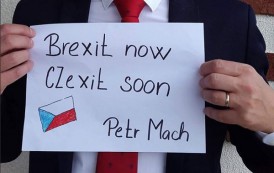 Brexit now
Czexit soon
Petr Mach